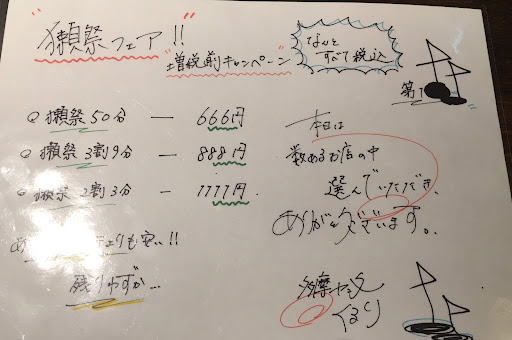 獺祭フェア!!
"増税前キャンペーン"
なんと
すべて税込
第1
獺祭50分 — 666円
獺祭3割9分 — 888円
獺祭2割3分 — 1111円
も安い!!
残りわずか…
本日は
数あるお店の中
選んでいただき、
ありがとうございます。
多摩